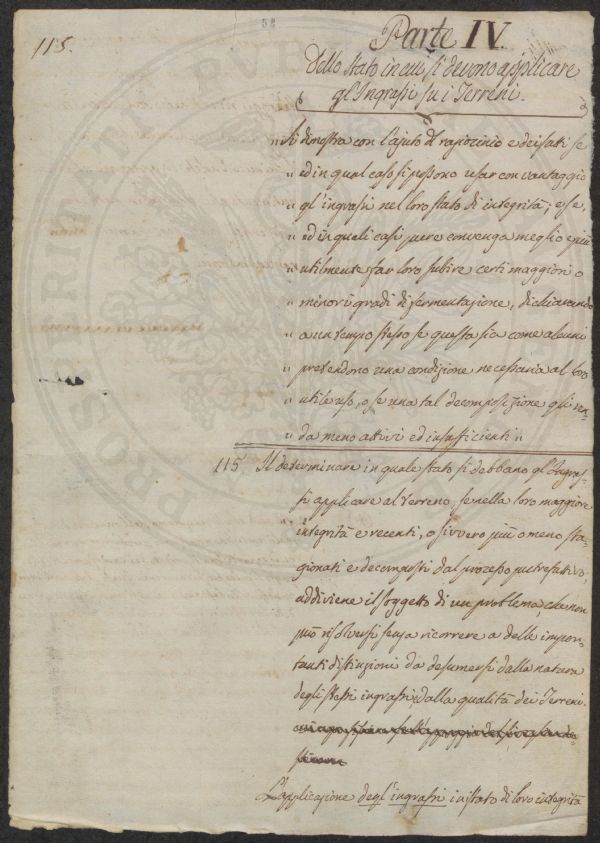 52
115.
Parte IV.
Dello Stato in cui si devono applicare
gl'Ingrassi su i Terreni.
"Si dimostra con l'ajuto di raziocinio e dei fatti se
"ed in qual caso si possono usar con vantaggio
"gl'ingrassi nel loro stato di integrità; e se,
"ed in quali casi pure convenga meglio e più
"utilmente far loro subire certi maggiori o
"minori gradi di fermentazione, dichiarando
"a un tempo stesso se questa sia come alcuni
"pretendono una condizione necessaria al loro
"utile uso, o se una tal decomposizione gli ren-
"da meno attivi ed insufficienti"
115. Il determinare in quale stato si debbano gl'Ingras-
si applicare al terreno, se nella loro maggiore
integrità e recenti, o sivvero più o meno sta-
gionati e decomposti dal processo putrefattivo,
addiviene il soggetto di un problema, che non
può risolversi senza ricorrere a delle impor-
tanti distinzioni da desumersi dalla natura
degli stessi ingrassi, dalla qualità dei Terreni.
L'applicazione degl'ingrassi in istato di loro integrità